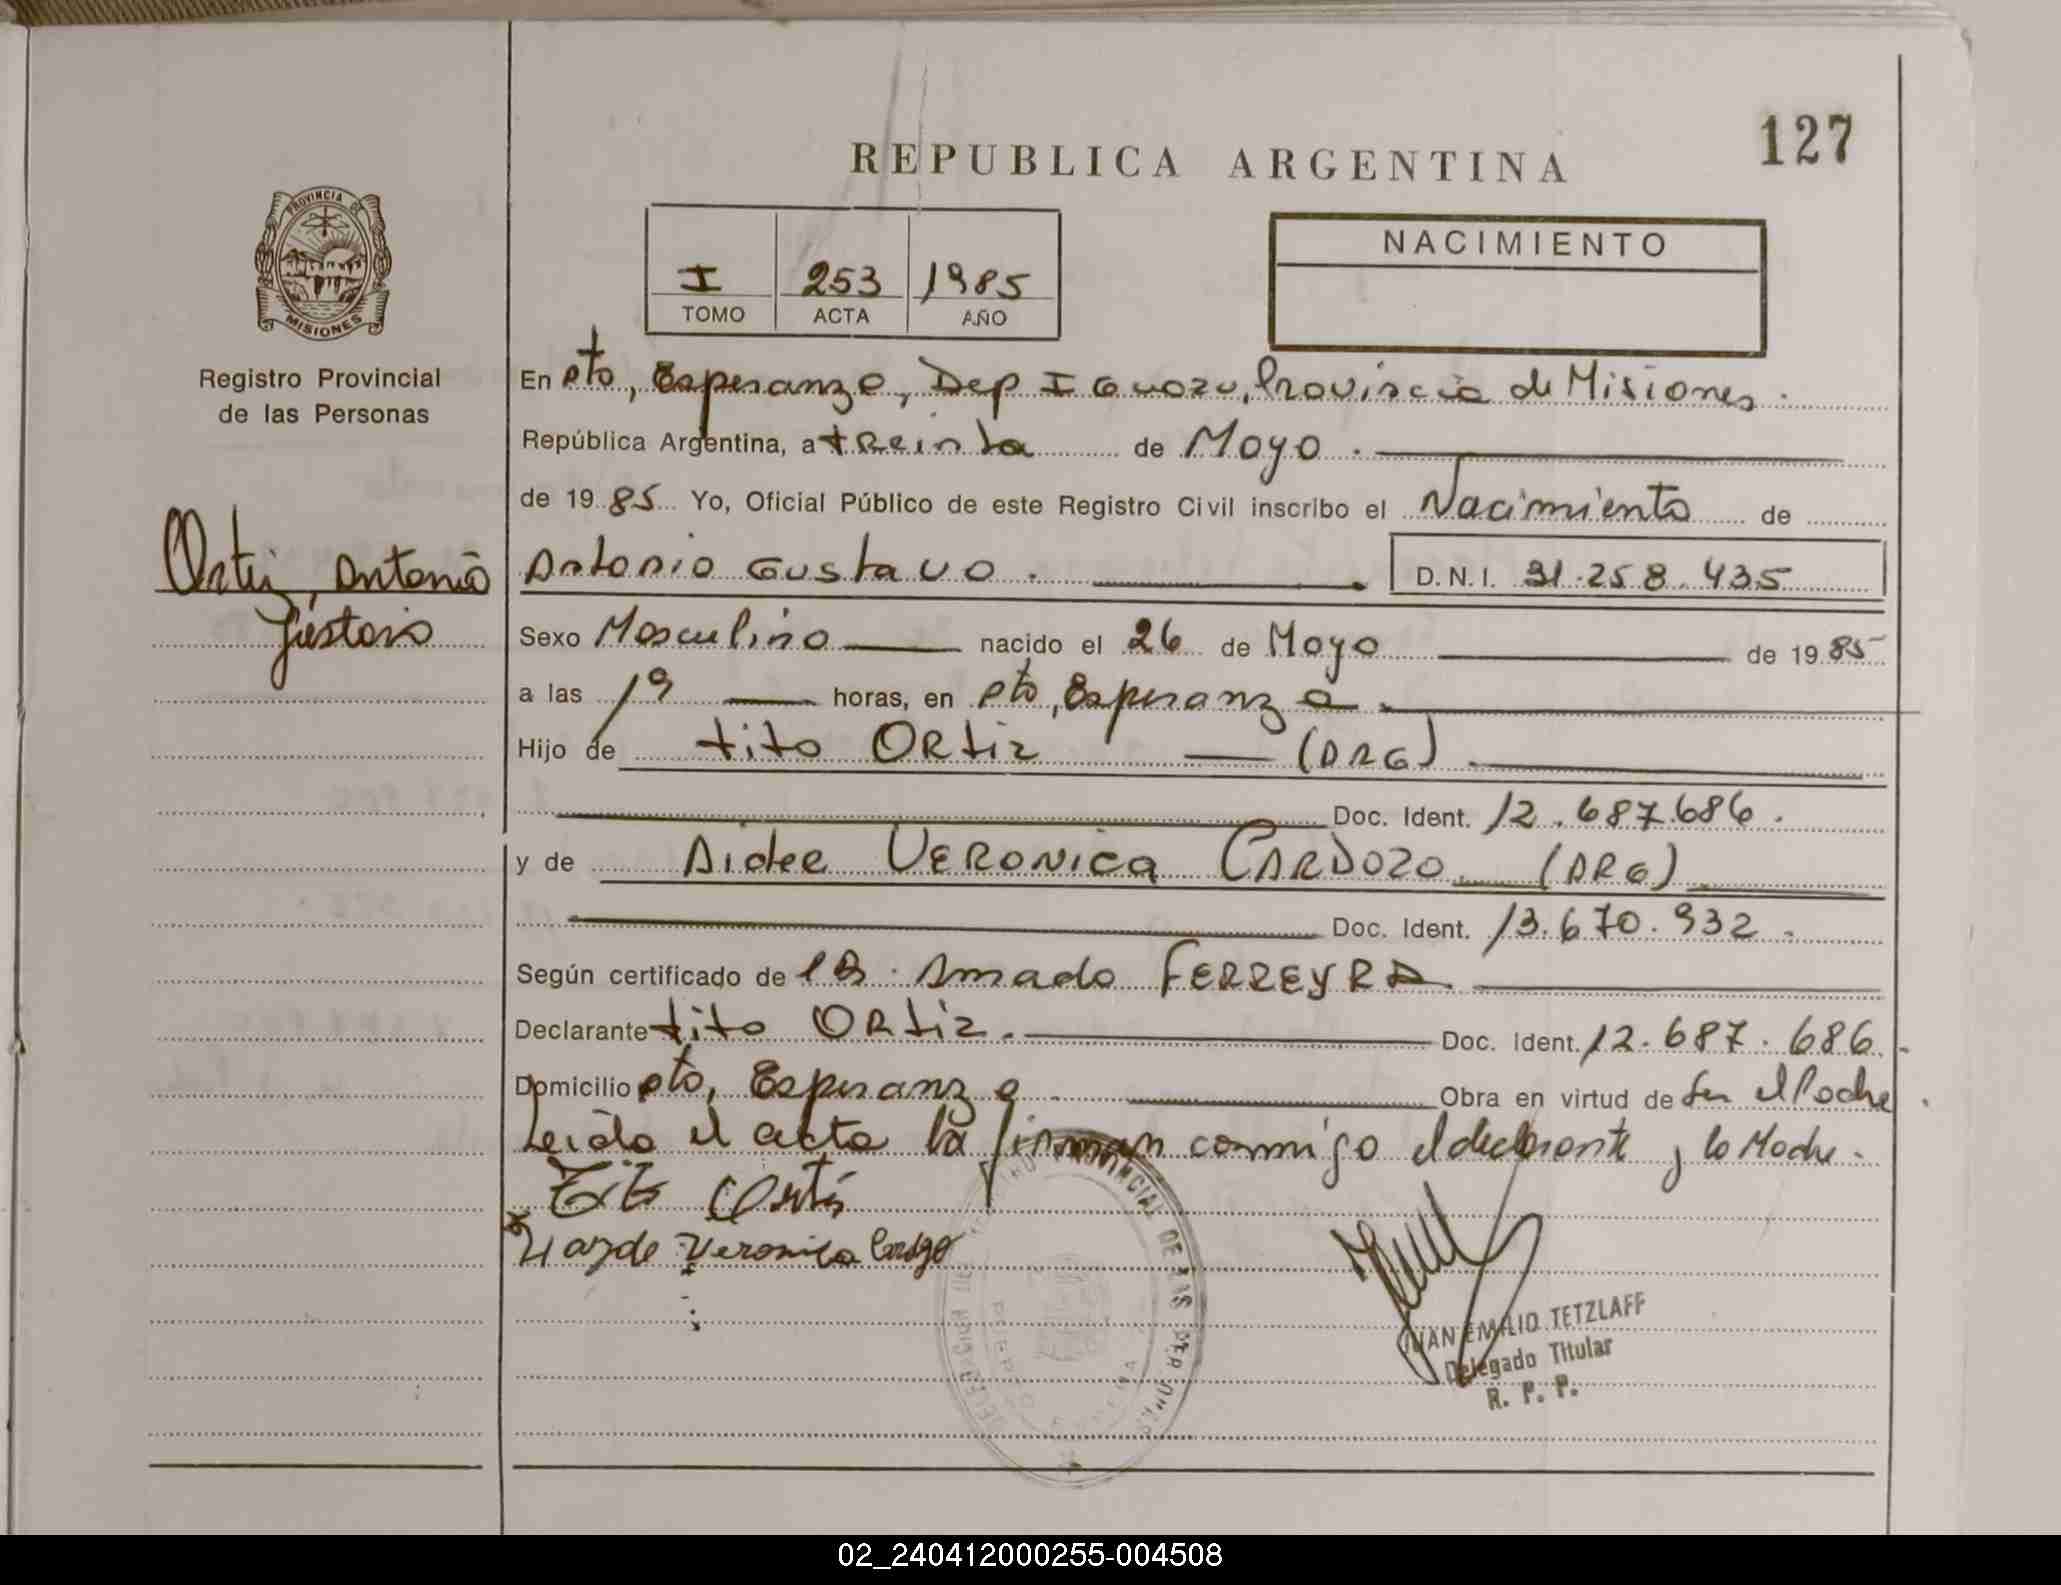 REPUBLICA ARGENTINA
127
PROVINCIA DE
MISIONES
Registro Provincial
de las Personas
I 253 1985
TOMO ACTA AÑO
NACIMIENTO
En Pto, Esperanza, Dep Iguazu, Provincia de Misiones.
República Argentina, a treinta de Mayo.
de 1985 Yo, Oficial Público de este Registro Civil inscribo el Nacimiento de
Ortiz, Antonio
Gustavo
Antonio Gustavo. D.N.I. 31.258.435
Sexo Masculino nacido el 26 de Mayo de 1985
a las 19 horas, en Pto, Esperanza.
Hijo de tito Ortiz (ARG)
Doc. Ident. 12.687.686.
y de Aidee VERONICA CARDOZO (ARG)
Doc. Ident. 13.670.932.
Según certificado de Amado FERREYRA
Declarante tito Ortiz. Doc. Ident. 12.687.686.
Domicilio Pto, Esperanza Obra en virtud de Ser el Padre.
Leida el acta la firman conmigo el declarante y la Madre.
Tito Ortiz
Veronica
PROVINCIAL DE LAS PERSONAS
JUAN EMILIO TETZLAFF
Delegado Titular
R. P. P.
02_240412000255-004508